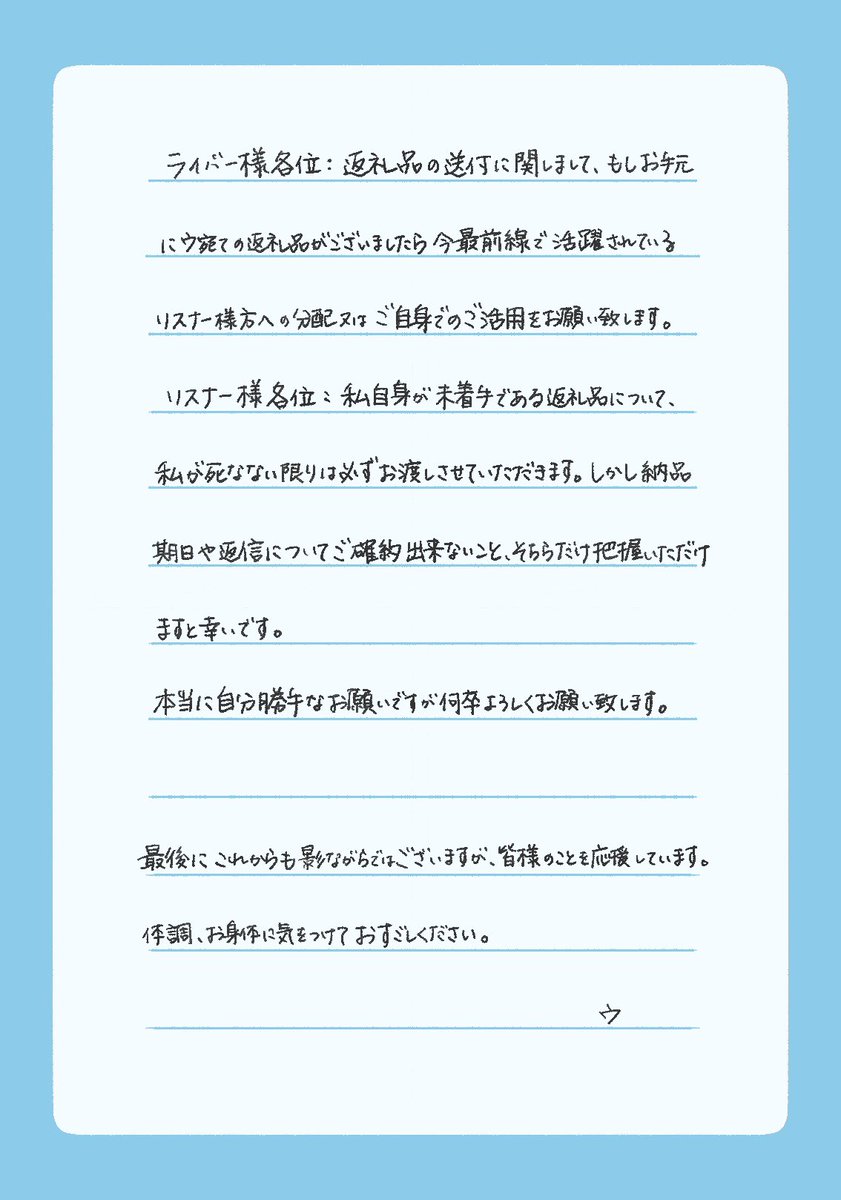 ライバー様各位：返礼品の送付に関しまして、もしお手元
にウ宛ての返礼品がございましたら今最前線で活躍されている
リスナー様方への分配又はご自身でのご活用をお願い致します。
リスナー様各位：私自身が未着手である返礼品について、
私が死なない限りは必ずお渡しさせていただきます。しかし納品
期日や返信についてご確約出来ないこと、そちらだけ把握いただけ
ますと幸いです。
本当に自分勝手なお願いですが何卒よろしくお願い致します。
最後にこれからも影ながらではございますが、皆様のことを応援しています。
体調、お身体に気をつけておすごしください。
ウ